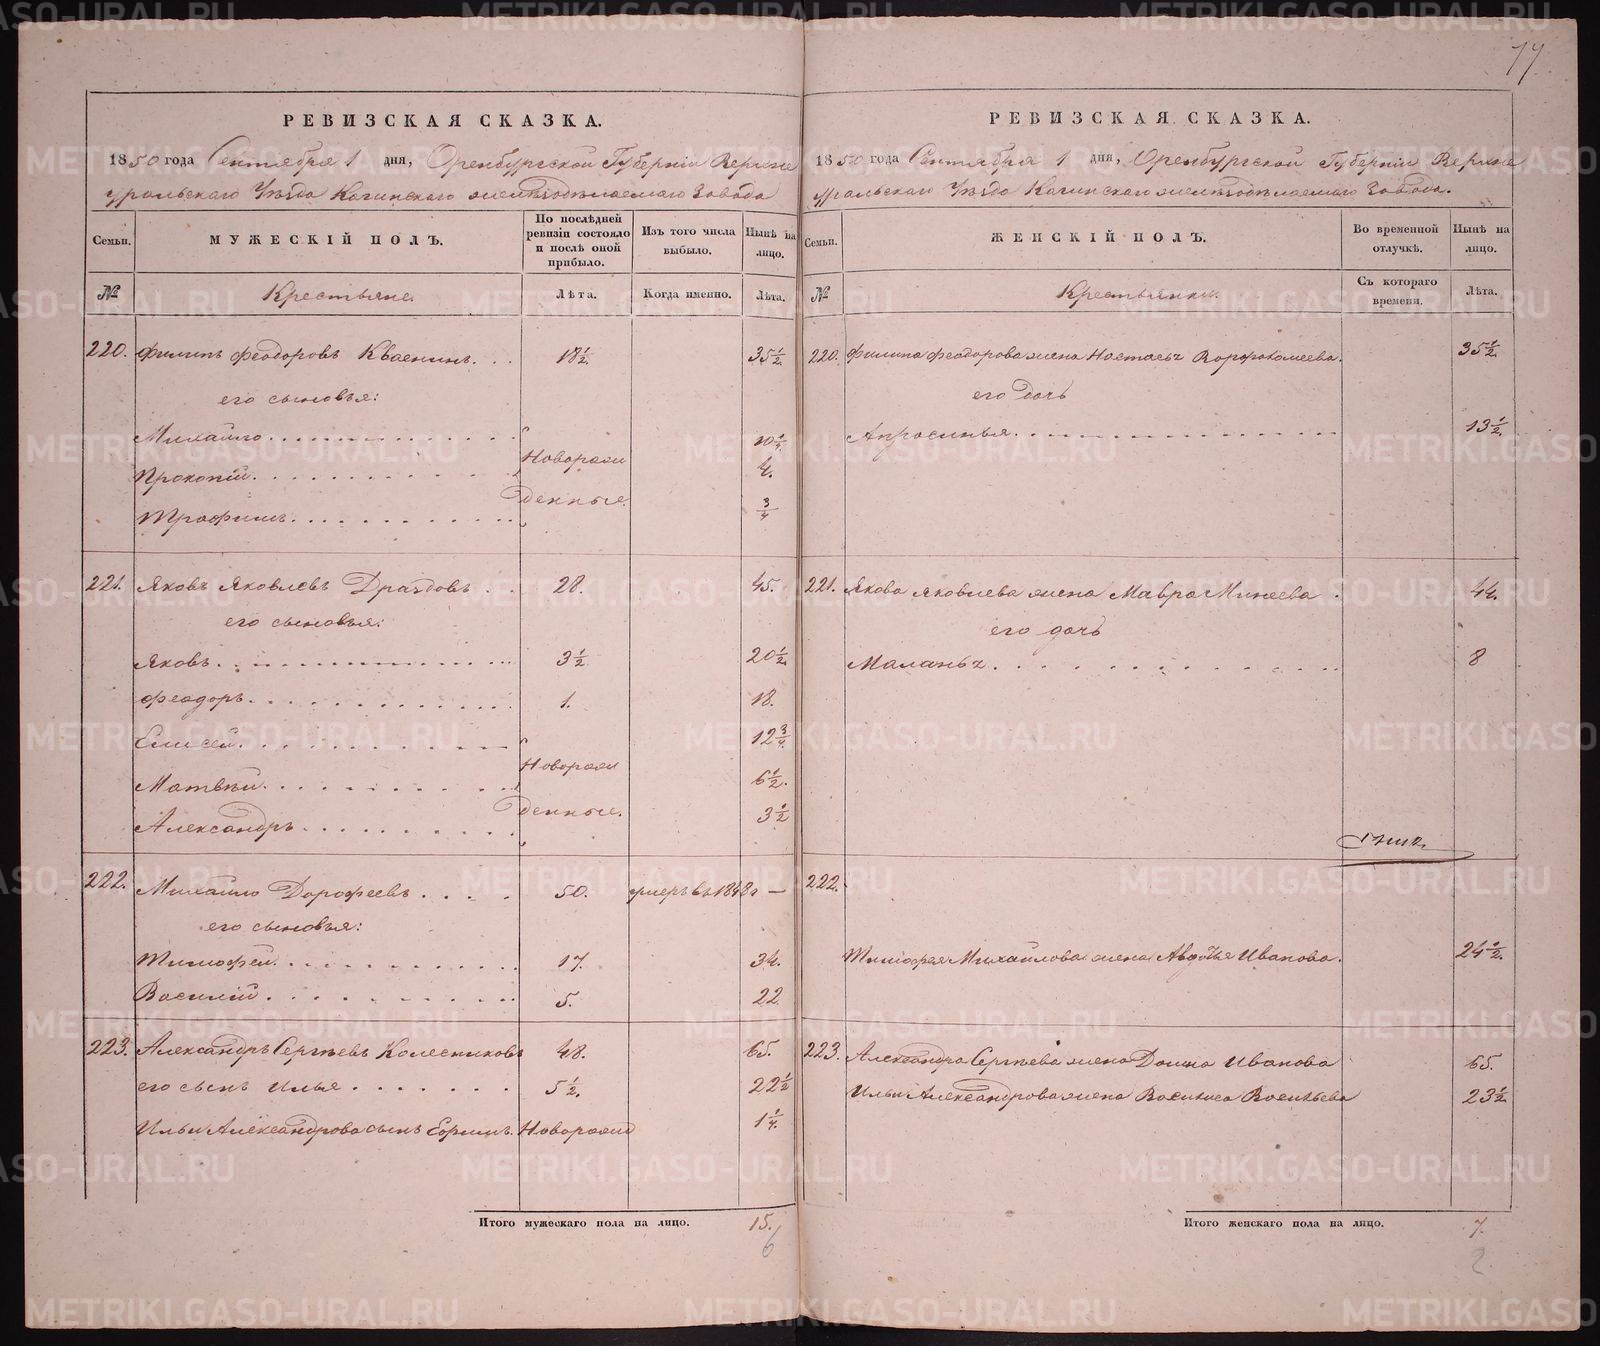 77
РЕВИЗСКАЯ СКАЗКА.
1850 года Сентября 1 дня, Оренбургской Губерніи Верхне
уральскаго Уѣзда Кагинскаго желѣзодѣлаемаго Завода
Семьи. МУЖЕСКІЙ ПОЛЪ. По послѣдней ревизіи состояло и послѣ оной прибыло. Изъ того числа выбыло. Нынѣ на лицо.
№ Крестьяне. Лѣта. Когда именно. Лѣта.
220. Филипъ Феодоровъ Квасникъ. 18½ 35½
его сыновья:
Михайло 10¼
Прокопій. Новорож 4.
Трофимъ. денные. ¾
221. Яковъ Яковлевъ Драздовъ 28. 45.
его сыновья:
Яковъ. 3½ 20½
Феодоръ. 1. 18.
Елисей. 12¾
Матвѣй. Новорож 6½.
Александръ. денные. 3½
222. Михайло Дорофеевъ 50. умеръ въ 1848 г —
его сыновья:
Тимофей. 17. 34.
Василій 5. 22
223. Александръ Сергѣевъ Колесниковъ 48. 65.
его сынъ Илья 5½. 22½
Ильи Александрова сынъ Ефимъ. Новорожд 1¼
Итого мужескаго пола на лицо. 15.
6
РЕВИЗСКАЯ СКАЗКА.
1850 года Сентября 1 дня, Оренбургской Губерніи Верхне
уральскаго Уѣзда Кагинскаго желѣзодѣлаемаго Завода.
Семьи. ЖЕНСКІЙ ПОЛЪ. Во временной отлучкѣ. Нынѣ на лицо.
№ Крестьянки. Съ котораго времени. Лѣта.
220. Филипа Феодорова жена Настасья 35½
его дочь
Апросинья. 13½.
221. Якова Яковлева жена Мавра Минеева 44.
его дочь
Маланья 8
222.
Тимофея Михайлова жена Авдотья Иванова. 24½.
223. Александра Сергѣева жена Домна Иванова 65.
Ильи Александрова жена Василиса Васильева 23½
Итого женскаго пола на лицо. 7.
2
METRIKI.GASO-URAL.RU